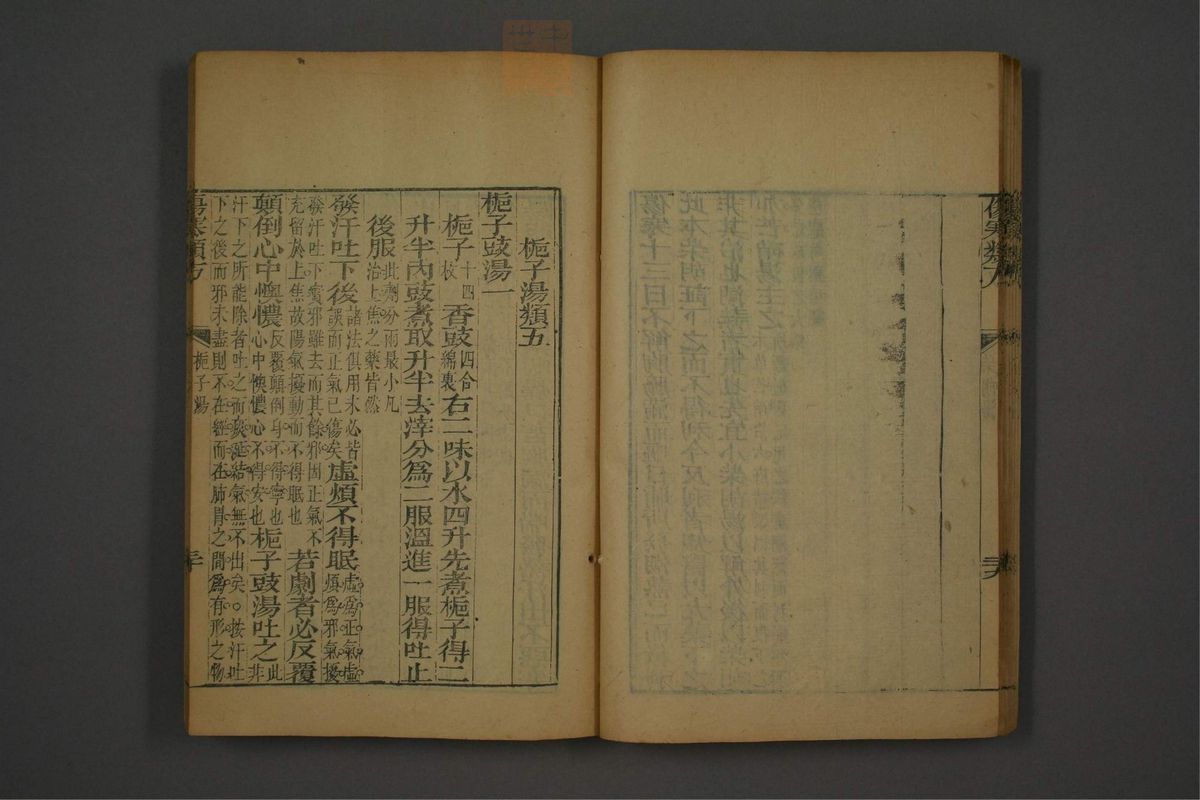 傷寒類方
梔子湯類五
梔子豉湯一
梔子十四枚香豉四合綿裹右二味以水四升先煮梔子得二
升半內豉煮取升半去滓分爲二服溫進一服得吐止
後服此劑分兩最小凡治上焦之藥皆然
發汗吐下後諸法俱用未必皆誤而正氣已傷矣虛煩不得眠虛爲正氣虛煩爲邪氣擾
發汗吐下實邪雖去而其餘邪因正氣不充留於上焦故陽氣擾動而不得眠也若劇者必反覆
顛倒心中懊憹反覆顛倒身不得寧也心中懊憹心不得安也梔子豉湯吐之此非
汗下之所能除者吐之而痰涎結氣無不出矣。按汗吐下之後而邪未盡則不在經而在肺胃之間爲有形之物
傷寒類方 梔子湯 三十